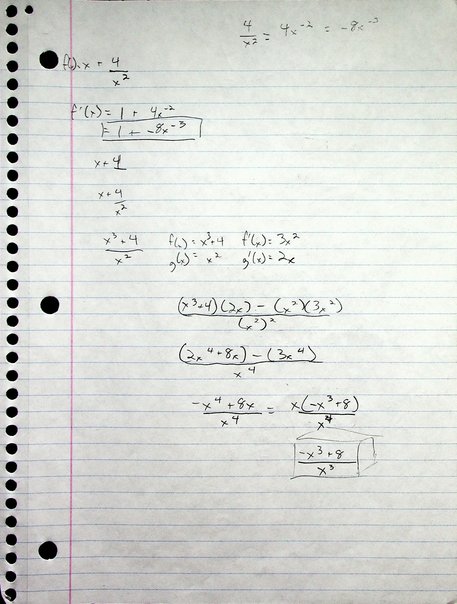 4/x² = 4x⁻² = -8x⁻³
f(x) = x + 4/x²
f'(x) = 1 + 4x⁻²
= 1 + -8x⁻³
x+4
x+4/x²
x³+4/x² f(x) = x³+4 f'(x) = 3x²
g(x) = x² g'(x) = 2x
(x³+4)(2x) - (x²)(3x²)/(x²)²
(2x⁴+8x) - (3x⁴)/x⁴
-x⁴+8x/x⁴ = x(-x³+8)/x⁴
-x³+8/x³